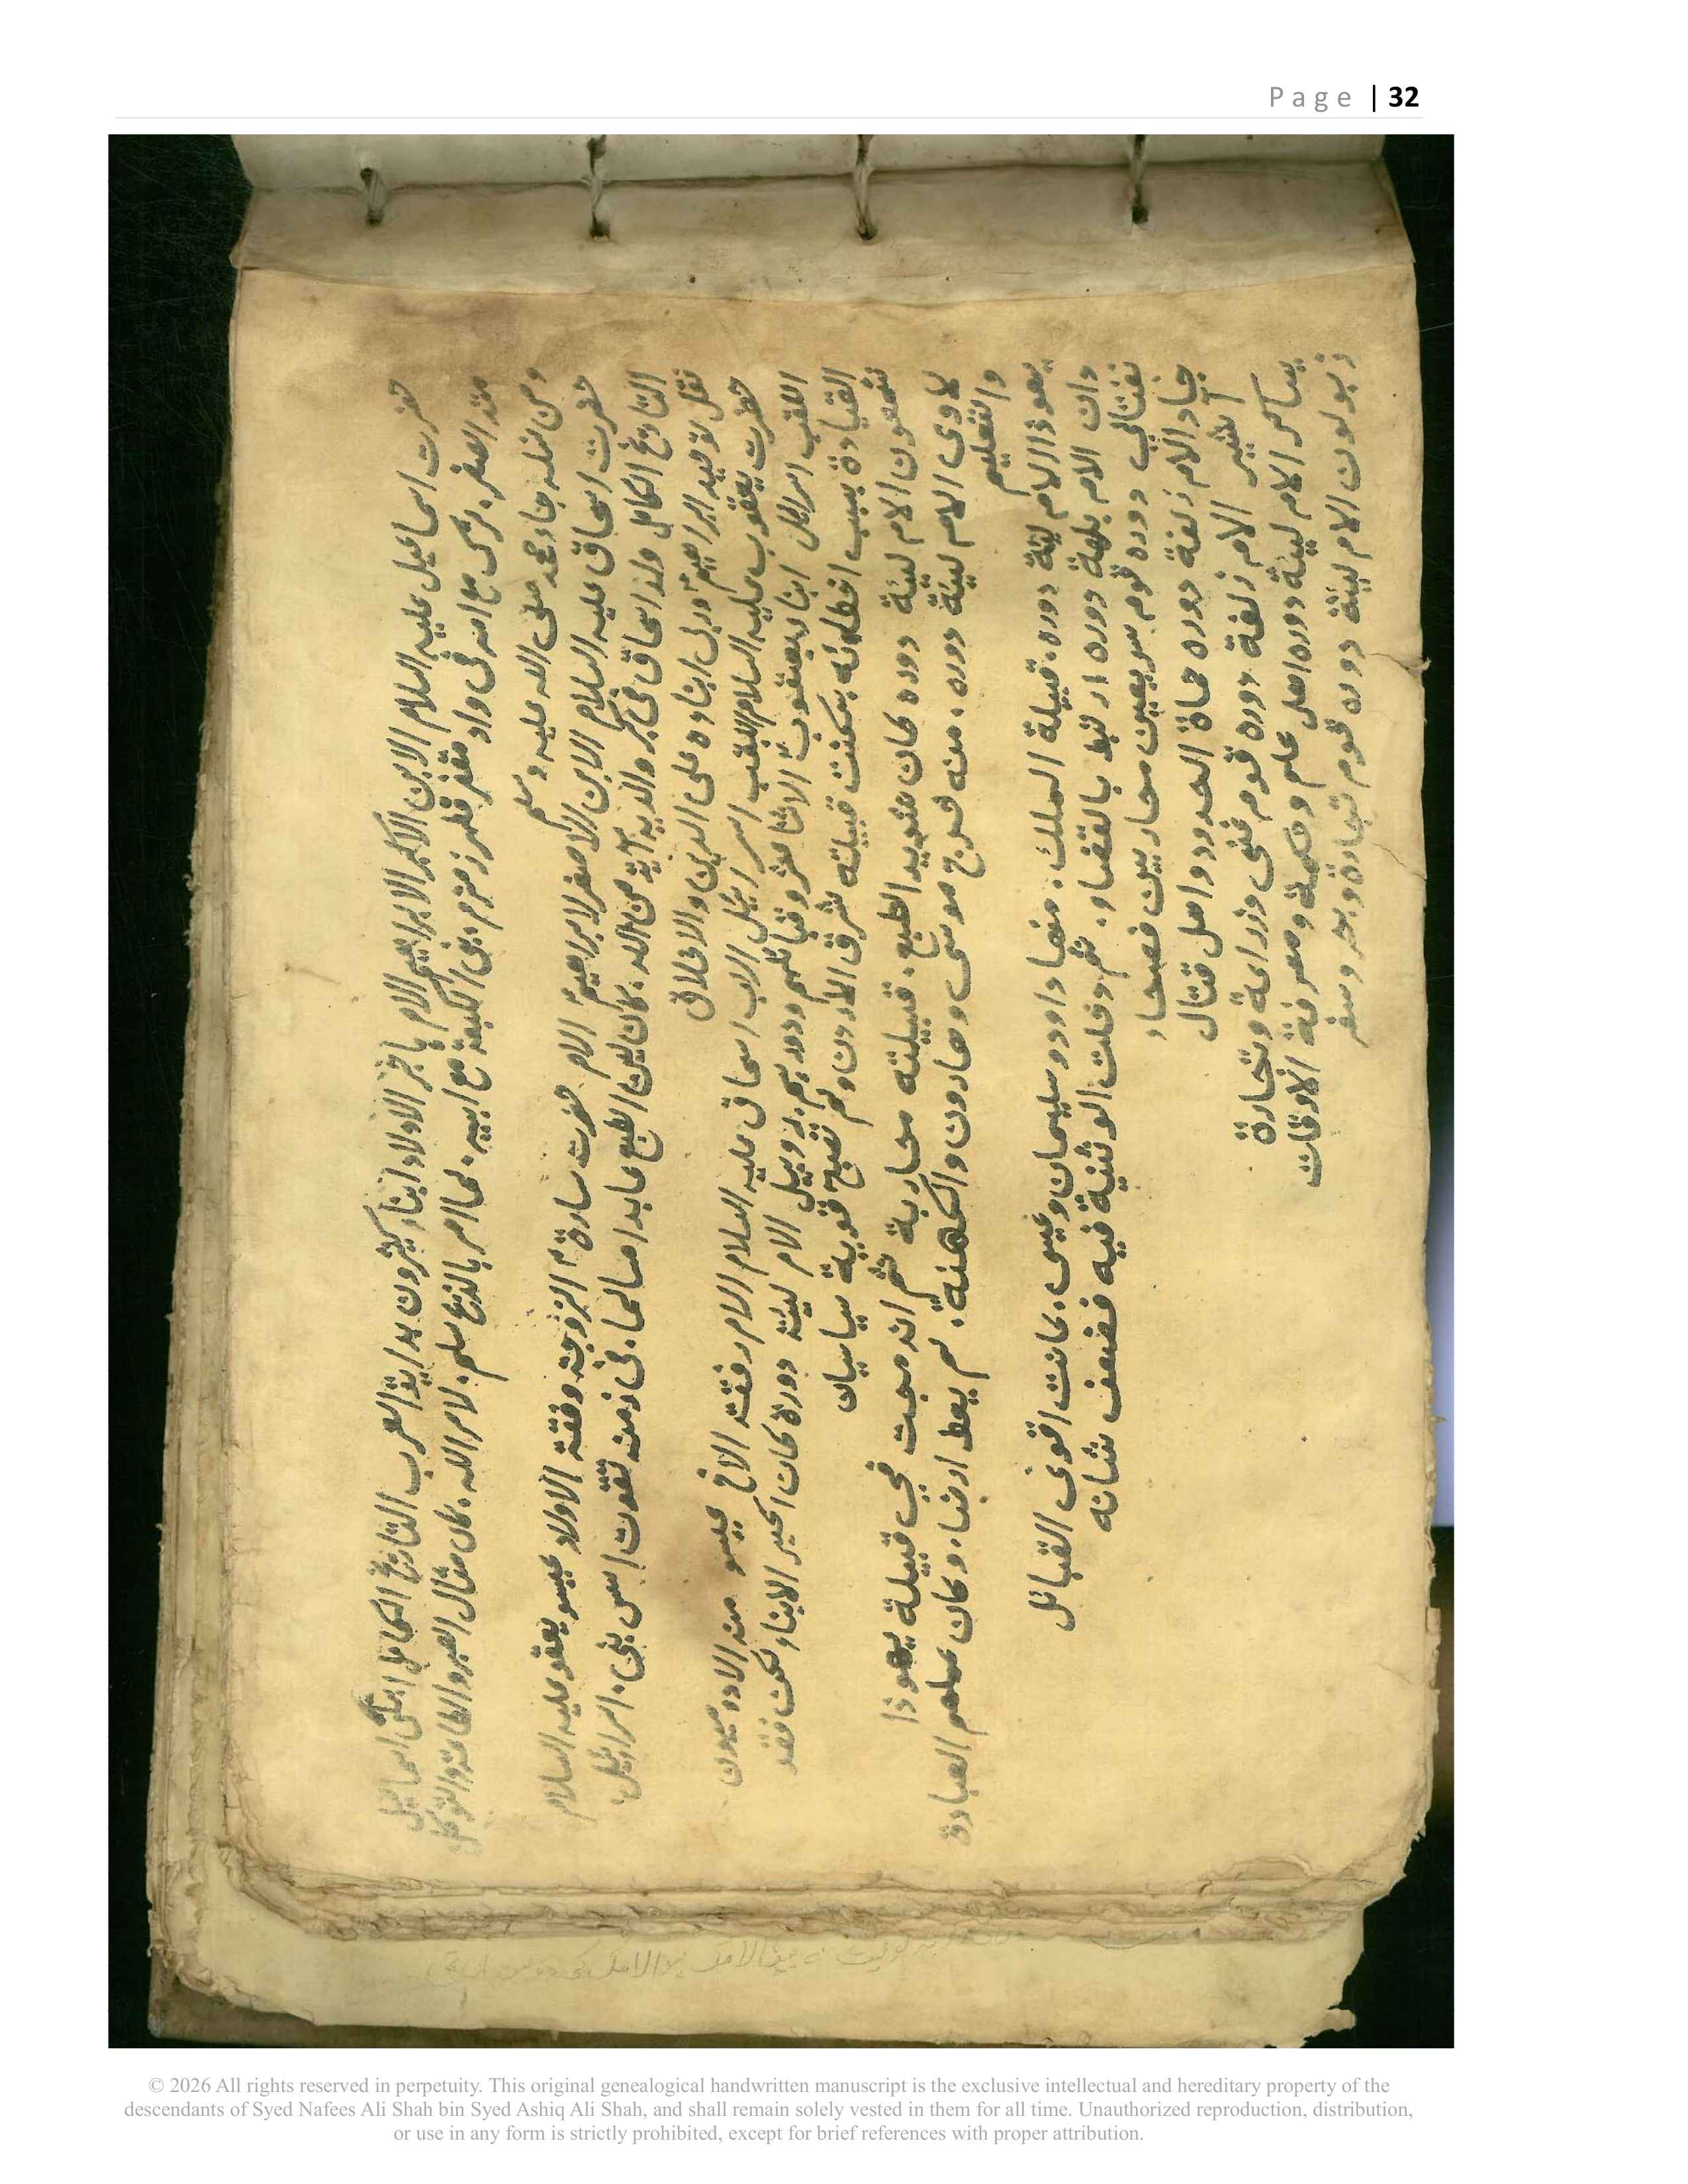 Page | 32
حضرت اسماعيل عليه السلام الابن الاكبر لابراهيم الام هاجر الاولاد ابناء كثيرون بداية العرب التاريخ الكامل اسماعيل
منذ الصغر، ترك مع امه فى واد مقفر فظهر زمزم، بنى الكعبة مع ابيه، لما امر بالذبح سلم، لامر الله، كان مثال الصبر والطاعة والتوكل
ومن نسله جاء محمد صلى الله عليه وسلم
حضرت اسحاق عليه السلام الابن الاصغر لابراهيم الام حضرت سارة الزوجة رفقة الاولاد عيسو يعقو عليه السلام
التاريخ الكامل ولد اسحاق فى كبر والديه آية من الله، كان لين الطبع عابدا صالحا، فى زمنه تقوت اسس بنى، اسرائيل،
نقل توحيد ابراهيم وربى ابناءه على الدين والاخلاق
حضرت يعقوب عليه السلام اللقب اسرائيل الاب اسحاق عليه السلام الام رفقة الاخ عيسو
اللقب اسرائيل ابناء يعقوب الاثنا عشر وقبائلهم ودورهم، روبيل الام ليئة دورة كان اكبر الابناء لكن فقد
القيادة بسبب اخطائه سكنت قبيلته شرق الاردن ولم تصبح قوية سياسيان
شمعون الام ليئة دوره كان شديد الطبع، قبيلته محاربة ثم اندمجت في قبيلة يهوذا
لاوى الام ليئة دوره، منه خرج موسى وهارون والكهنة، لم يعط ارضا، وكان عملهم العبادة
والتعليم
يهوذا الام ليئة دوره، قبيلة الملك، منها داوود سليمان وعيسى، كانت اقوى القبائل
دان الام بلهة دوره ارتبط بالقضاء، ثم دخلت الوثنية فيه فضعف شانه
نفتالي دوره قوم سريعين محاربين فصحاء
جاد الام زلفة دوره حماة الحدود واهل قتال
اشير الام زلفة دوره قوم غنى وزراعة وتجارة
يساكر الام ليئة دوره اهل علم وحكمة ومعرفة الاوقات
زبولون الام ليئة دوره قوم تجارة وبحر وسفر
© 2026 All rights reserved in perpetuity. This original genealogical handwritten manuscript is the exclusive intellectual and hereditary property of the
descendants of Syed Nafees Ali Shah bin Syed Ashiq Ali Shah, and shall remain solely vested in them for all time. Unauthorized reproduction, distribution,
or use in any form is strictly prohibited, except for brief references with proper attribution.